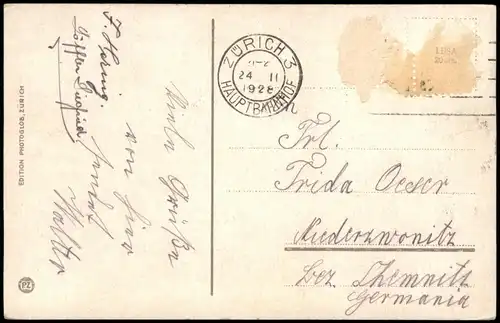 F. Hering
Viele Grüße
von hier
sendet
Walter
EDITION PHOTOGLOB, ZÜRICH
PZ
ZÜRICH 3
24 II
1928
HAUPTBAHNHOF
Frl.
Frida Oeser
Niederzwönitz
Bez Chemnitz
Germania